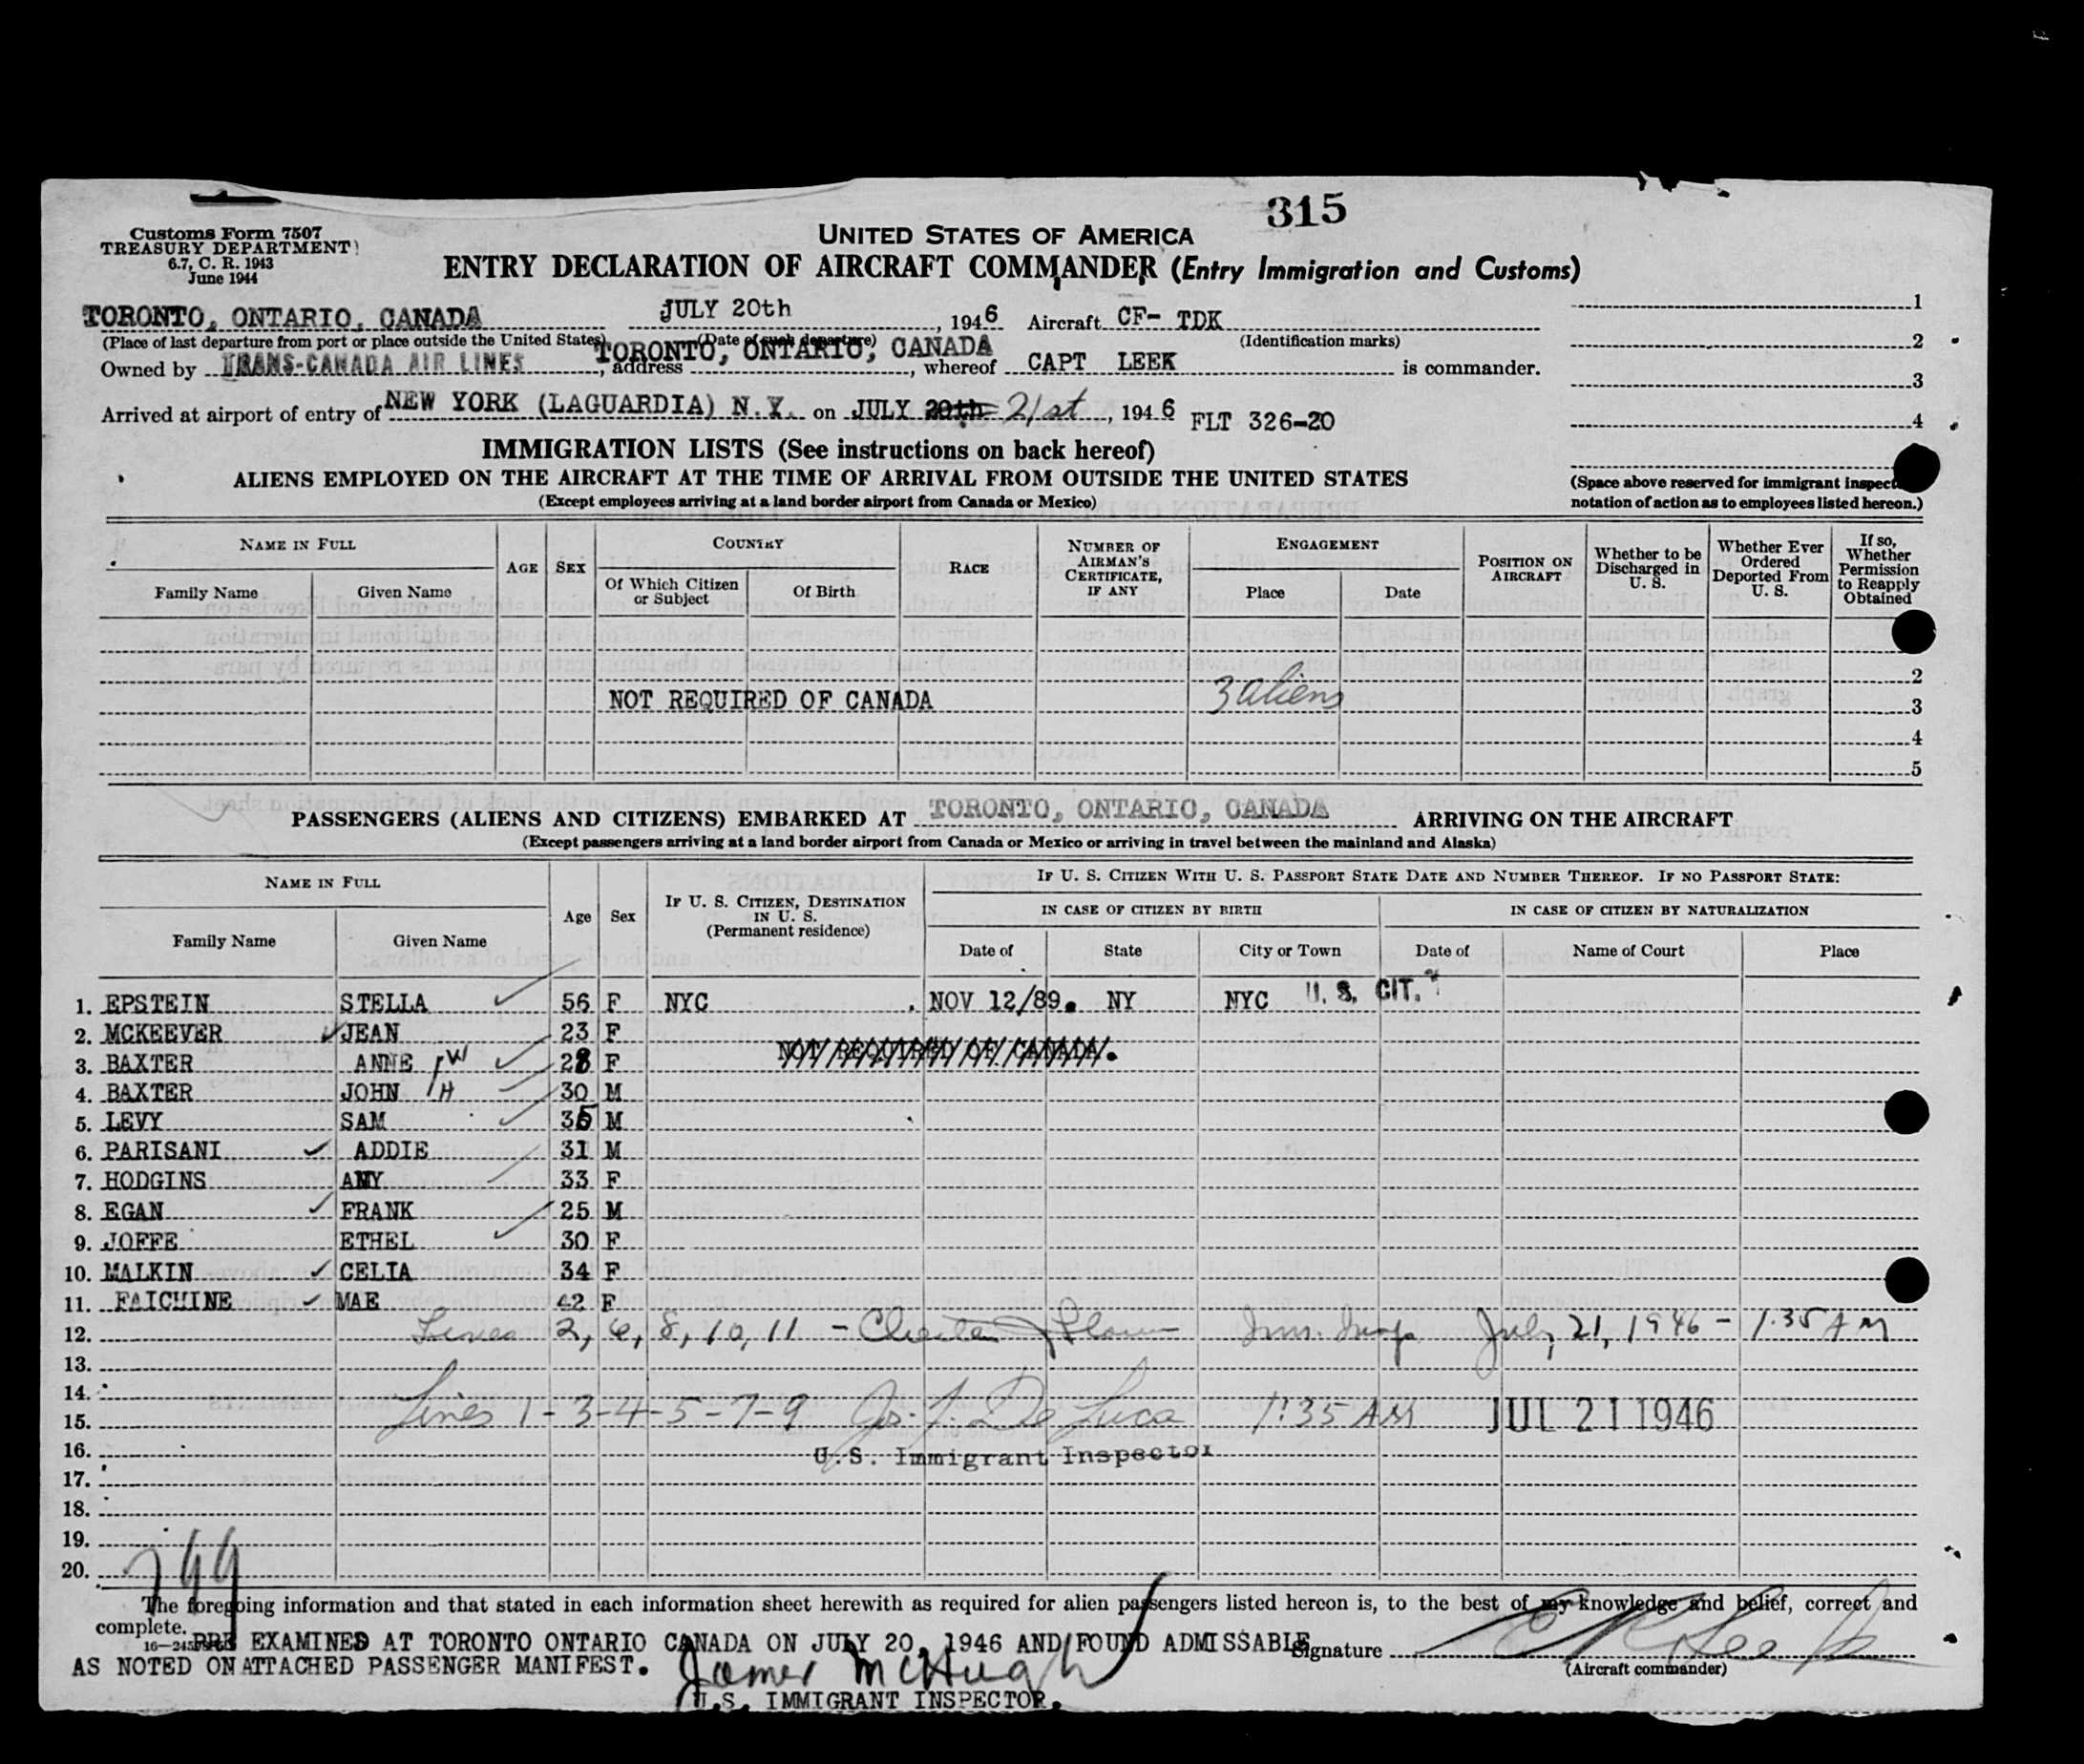 315
Customs Form 7507
TREASURY DEPARTMENT
6.7, C. R. 1943
June 1944
UNITED STATES OF AMERICA
ENTRY DECLARATION OF AIRCRAFT COMMANDER (Entry Immigration and Customs)
TORONTO, ONTARIO, CANADA JULY 20th, 1946 Aircraft CF- TDK 1
(Place of last departure from port or place outside the United States) (Date of such departure) (Identification marks) 2
Owned by TRANS-CANADA AIR LINES, address TORONTO, ONTARIO, CANADA, whereof CAPT LEEK is commander.
3
Arrived at airport of entry of NEW YORK (LAGUARDIA) N.Y. on JULY 20th 21st, 1946 FLT 326-20 4
IMMIGRATION LISTS (See instructions on back hereof)
ALIENS EMPLOYED ON THE AIRCRAFT AT THE TIME OF ARRIVAL FROM OUTSIDE THE UNITED STATES
(Except employees arriving at a land border airport from Canada or Mexico)
(Space above reserved for immigrant
notation of action as to employees listed hereon.)
NAME IN FULL
Family Name Given Name
AGE SEX
COUNTRY
Of Which Citizen or Subject Of Birth
RACE
NUMBER OF AIRMAN'S CERTIFICATE, IF ANY
ENGAGEMENT
Place Date
POSITION ON AIRCRAFT
Whether to be Discharged in U. S.
Whether Ever Ordered Deported From U. S.
If so, Whether Permission to Reapply Obtained
2
NOT REQUIRED OF CANADA 3 aliens 3
4
5
PASSENGERS (ALIENS AND CITIZENS) EMBARKED AT TORONTO, ONTARIO, CANADA ARRIVING ON THE AIRCRAFT
(Except passengers arriving at a land border airport from Canada or Mexico or arriving in travel between the mainland and Alaska)
NAME IN FULL
Family Name Given Name
Age Sex
IF U. S. CITIZEN, DESTINATION IN U. S. (Permanent residence)
IF U. S. CITIZEN WITH U. S. PASSPORT STATE DATE AND NUMBER THEREOF. IF NO PASSPORT STATE:
IN CASE OF CITIZEN BY BIRTH IN CASE OF CITIZEN BY NATURALIZATION
Date of State City or Town Date of Name of Court Place
1. EPSTEIN STELLA 56 F NYC NOV 12/89. NY NYC U. S. CIT.
2. MCKEEVER JEAN 23 F
NOT REQUIRED OF CANADA.
3. BAXTER ANNE W 28 F
4. BAXTER JOHN H 30 M
5. LEVY SAM 35 M
6. PARISANI ADDIE 31 M
7. HODGINS 33 F
8. EGAN FRANK 25 M
9. JOFFE ETHEL 30 F
10. MALKIN CELIA 34 F
11. FAICHINE MAE 42 F
12. Lines 2, 6, 8, 10, 11 - July 21, 1946 - 1.35 AM
13.
14.
15. Lines 1-3-4-5-7-9 Jos. J. De Luca 1:35 AM JUL 21 1946
16. U.S. Immigrant Inspector
17.
18.
19.
20.
The foregoing information and that stated in each information sheet herewith as required for alien passengers listed hereon is, to the best of my knowledge and belief, correct and
complete.
PRE EXAMINED AT TORONTO ONTARIO CANADA ON JULY 20, 1946 AND FOUND ADMISSABLE Signature
AS NOTED ON ATTACHED PASSENGER MANIFEST. James McHugh (Aircraft commander)
U.S. IMMIGRANT INSPECTOR.